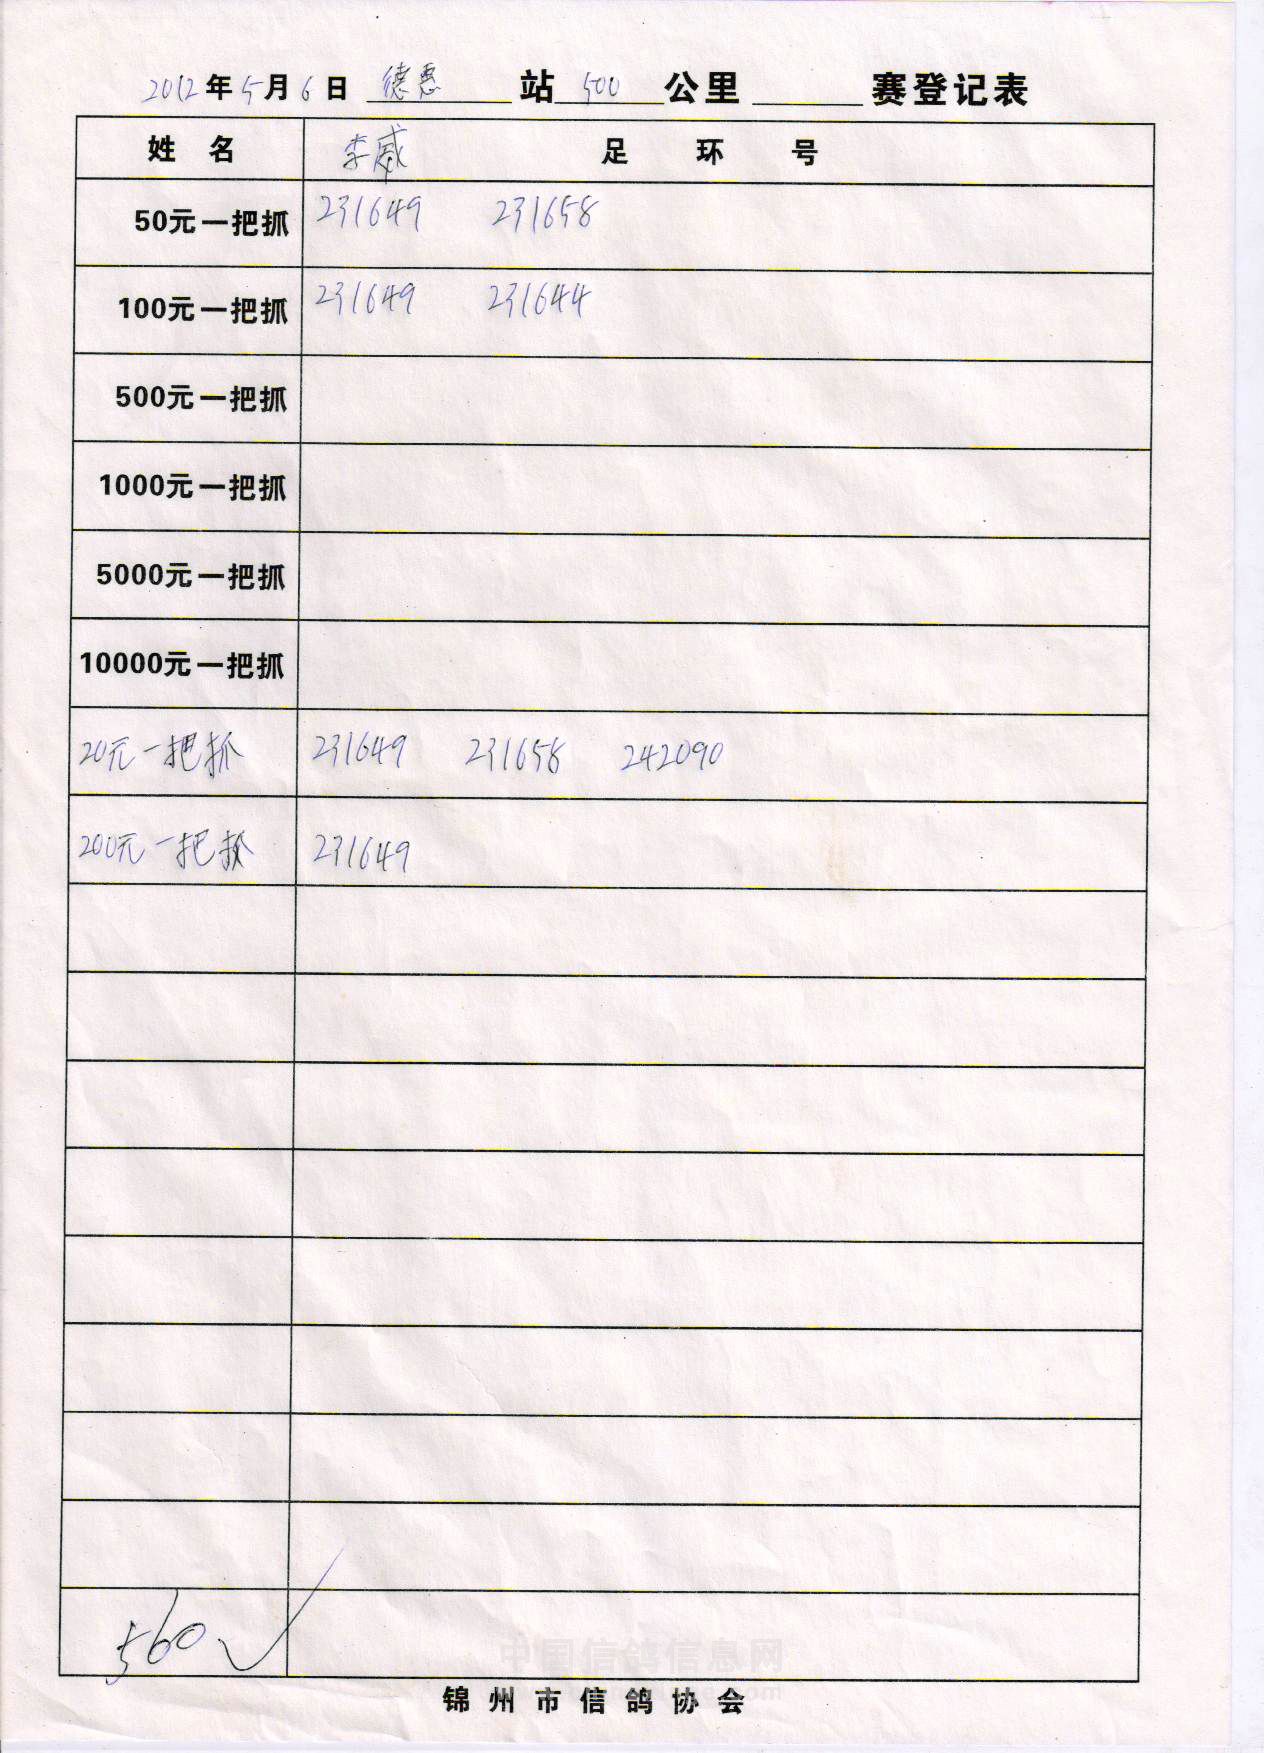 2012年5月6日 德惠 站 500 公里 赛登记表
姓 名 李威 足 环 号
50元一把抓 231649 231658
100元一把抓 231649 231644
500元一把抓
1000元一把抓
5000元一把抓
10000元一把抓
20元一把抓 231649 231658 242090
200元一把抓 231649
560 ✓
中国信鸽信息网
锦州市信鸽协会